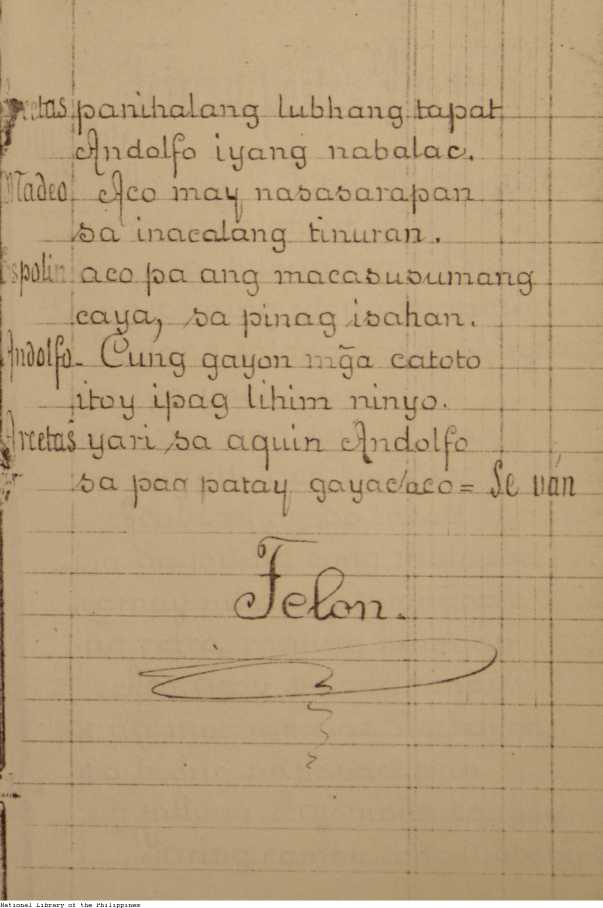 Arcetas panihalang lubhang tapat
Andolfo iyang nabalac.
Madeo. Aco may nasasarapan
sa inacalang tinuran.
Espolin aco pa ang macasusumang
caya, sa pinag isahan.
Andolfo. Cung gayon mg̃a catoto
itoy ipag lihim ninyo.
Arcetas yari sa aquin Andolfo
sa pag patay gayac aco = Se ván
Felon.
National Library of the Philippines